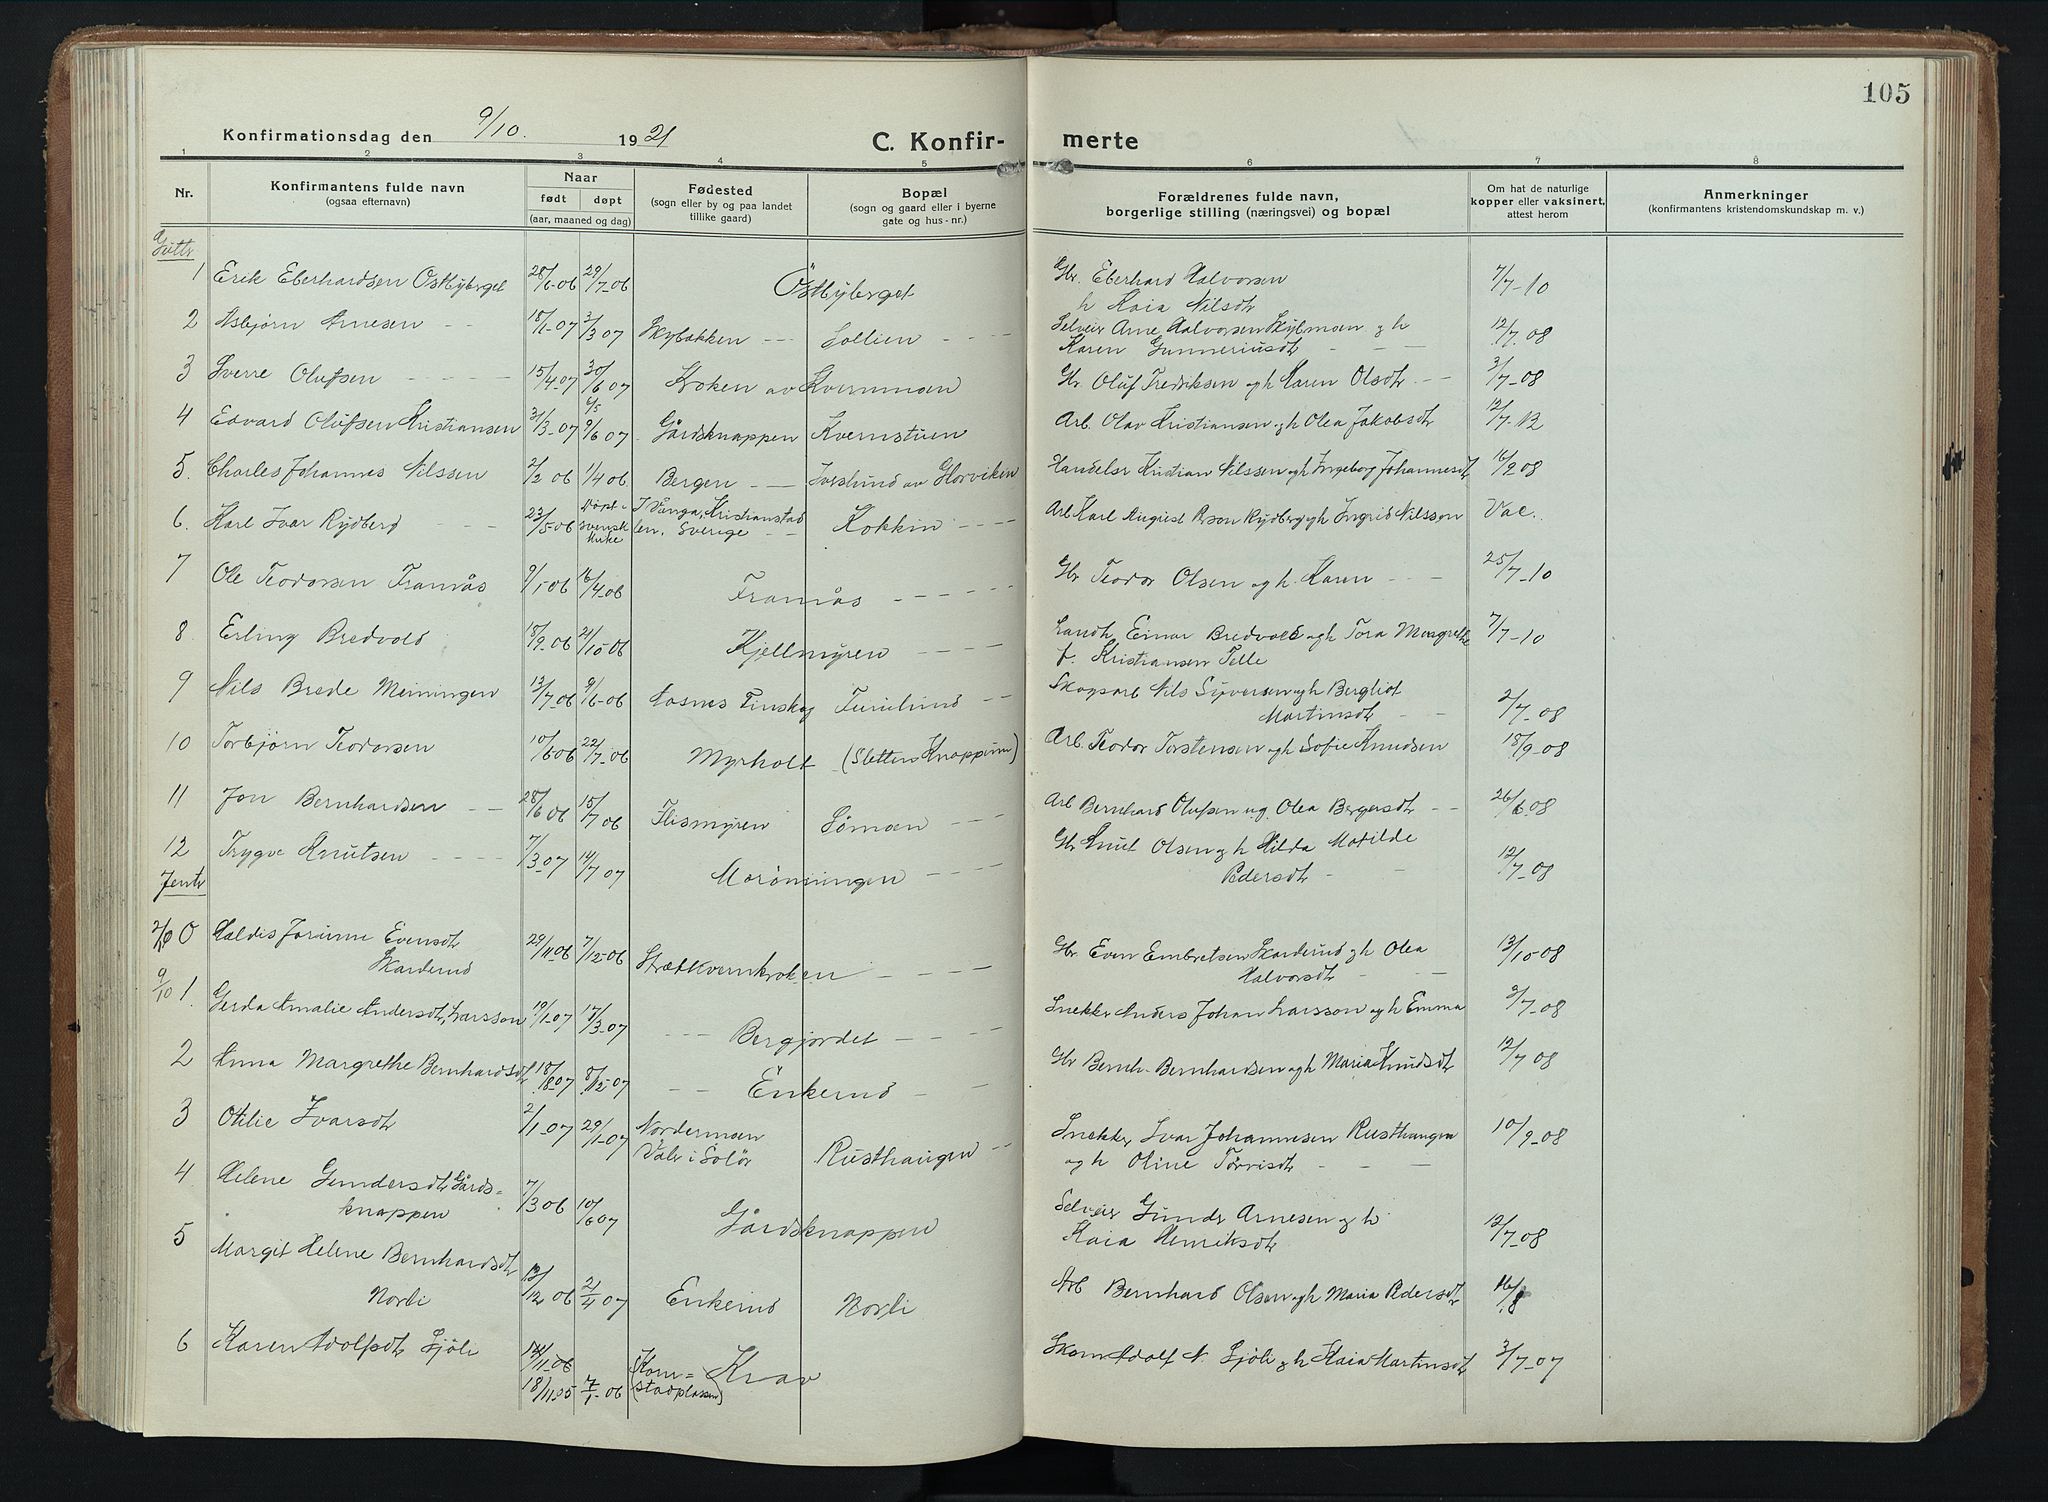 105
Konfirmationsdag den 9/10. 1921 C. Konfir- merte
1 2 3 4 5 6 7 8
Nr. Konfirmantens fulde navn (ogsaa efternavn) Naar født døpt (aar, maaned og dag) Fødested (sogn eller by og paa landet tillike gaard) Bopæl (sogn og gaard eller i byerne gate og hus-nr.) Forældrenes fulde navn, borgerlige stilling (næringsvei) og bopæl Om hat de naturlige kopper eller vaksinert, attest herom Anmerkninger (konfirmantens kristendomskundskap m. v.)
Gutter
1 Erik Eberhardsen Östbyberget 28/6-06 29/7-06 Östbyberget Gbr. Eberhard Halvorsen 7/7-10
h Kaia Nilsdtr
2 Asbjörn Arnesen 18/1-07 3/3 07 Skybakken Sollien Selveier Arne Halvorsen Skybmoen og h 12/7.08
Karen Gunneriusdtr
3 Sverre Olufsen 15/4-07 30/6 07 Kroken av Kvernmoen Gbr Oluf Fredriksen og h Karen Olsdtr 3/7-08
4 Edvard Olufsen Kristiansen 31/3-07 9/6 07 Gårdsknappen Kvernstuen Arb. Olav Kristiansen og h Olea Jakobsdtr 12/7-12
5. Charles Johannes Nilssen 2/2 06 1/4 06 Bergen av Glorviken Handelsr Kristian Nilssen og h Ingeborg Johannesdtr 16/9 08
6. Karl Ivar Rydberg 23/5-06 Döpt i svensk kirke I Vånga, Kristianstad len, Sverige Kokkin Arb Karl August Person Rydberg og h Ingrid Nilsson Vac.
7 Ole Teodorsen Framås 9/1 06 16/4-06 Framås Gbr Teodor Olsen og h. Karen 25/7-10
8 Erling Bredvold 18/9-06 21/10-06 Kjellmyren Landh. Einar Bredvold og h Tora Margrethe 7/7-10
f. Kristiansen Telle
9 Nils Brede Meiningen 13/7-06 9/6-06 Aasnes Finskog Furulund Skogsarb Nils Syversen og h Bergliot 2/7-08
Martinsdtr
10 Torbjörn Teodorsen 10/6 06 22/7-06 Myrholt (Sletten Knappum) Arb. Teodor Torstensen og h Sofie Knudsen 18/9-08
11 Jon Bernhardsen 28/6 06 15/7 06 Flismyren Sömoen Arb Bernhard Olufsen og Olea Bergersdtr 26/6 08
12 Trygve Knutsen 7/3-07 14/7 07 Morönningen Gbr Knut Olsen og h Hilda Matilde 12/7-08
Pedersdtr
Jenter
0 Haldis Jorunne Evensdtr 29/11 06 7/12-06 Strætkvernkroken Gbr Even Embretsen Skarderud og h Olea 13/10-08
Skarderud Halvorsdtr
9/10 1. Gerda Amalie Andersdtr, Larsson 19/1-07 17/3-07 Bergjordet Snekker Anders Johan Larsson og h Emma 3/7-08
2 Anna Margrethe Bernhardsdtr 8/12-07 Enkerud Gbr Bernh. Bernhardsen og h Maria Knudsdtr 12/7 08
3 Otilie Ivarsdtr 2/1-07 29/1-07 Nordermoen Våler i Solör Rusthaugen Snekker Ivar Johannesen Rusthaugen 10/9-08
og h Oline Törrisdtr
4 Helene Gundersdtr Gårds- 7/3 06 10/6 07 Gårdsknappen Selveier Gunder Arnesen og h 12/7-08
knappen Kaia Henriksdtr
5 Margit Helene Bernhardsdtr
Norli 13/12 06 21/4 07 Enkerud Norli Arb Bernhard Olsen og h Maria Pedersdtr 16/8
6 Karen Adolfsdtr Sjöli 14/11-06 Korn- Krav Skom Adolf N. Sjöli og h Kaia Martinsdtr 3/7-07
18/11 05 7/1-06 (stadplassen)